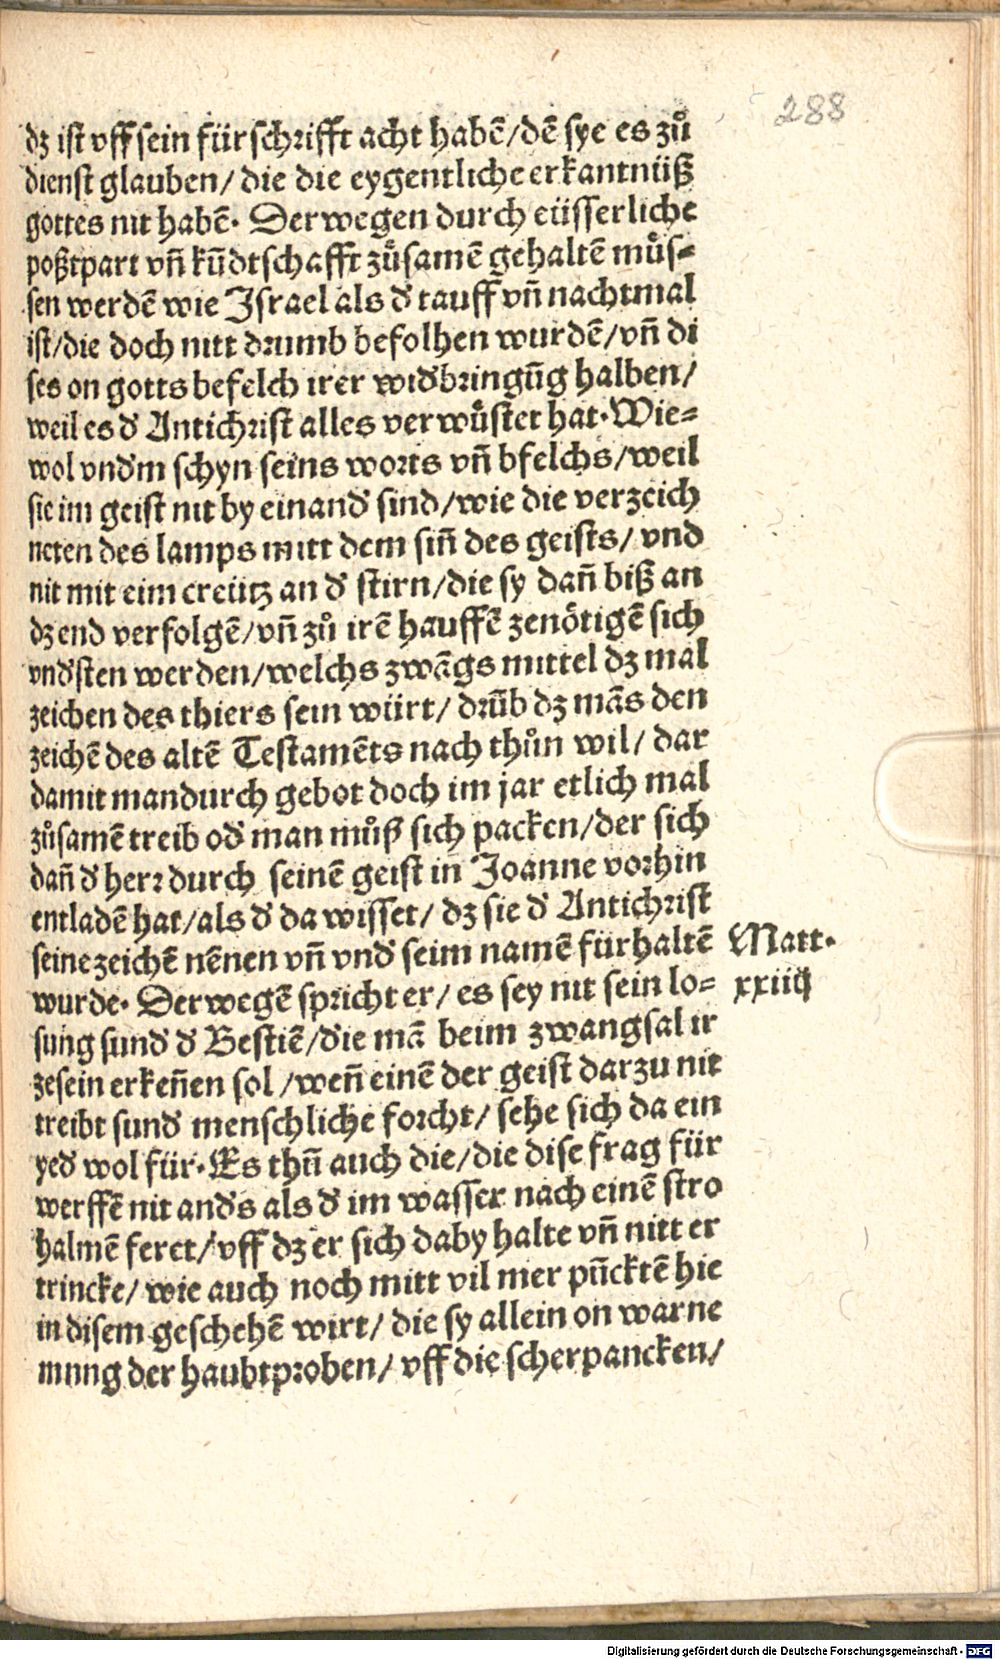 288
dz ist vff sein fürschrifft acht habē/dē sye es zů
dienst glauben/ die die eygentliche erkantnüß
gottes nit habē. Derwegen durch eüsserliche
poßtpart vñ kūdtschafft zůsamē gehaltē můs-
sen werdē wie Israel als đ tauff vñ nachtmal
ist/die doch nitt drumb befolhen wurdē/vñ di
ses on gotts befelch irer widbringūg halben/
weil es đ Antichrist alles verwůstet hat. Wie-
wol vnđm schyn seins worts vñ bfelchs/weil
sie im geist nit by einanđ sind/wie die verzeich
neten des lamps mitt dem siñ des geists/ vnd
nit mit eim creütz an đ stirn/die sy dañ biß an
dz end verfolgē/vñ zů irē hauffē zenötigē sich
vnđsten werden/welchs zwāgs mittel dz mal
zeichen des thiers sein würt/ drūb dz mās den
zeichē des altē Testamēts nach thůn wil/ dar
damit mandurch gebot doch im jar etlich mal
zůsamē treib ođ man můß sich packen/der sich
dañ đ herr durch seinē geist in Joanne vorhin
entladē hat/als đ da wisset/ dz sie đ Antichrist
seine zeichē nēnen vñ vnđ seim namē fürhaltē
wurde. Derwegē spricht er/ es sey nit sein lo-
sung sunđ đ Bestiē/die mā beim zwangsal ir
zesein erkeñen sol /weñ einē der geist darzu nit
treibt sunđ menschliche forcht/ sehe sich da ein
yeđ wol für. Es thū auch die/die dise frag für
werffē nit anđs als đ im wasser nach einē stro
halmē feret/vff dz er sich daby halte vñ nitt er
trincke/ wie auch noch mitt vil mer pūcktē hie
in disem geschehē wirt/ die sy allein on warne
mung der haubtproben/ vff die scherpancken/
Matt.
xxiiij
Digitalisierung gefördert durch die Deutsche Forschungsgemeinschaft - DFG